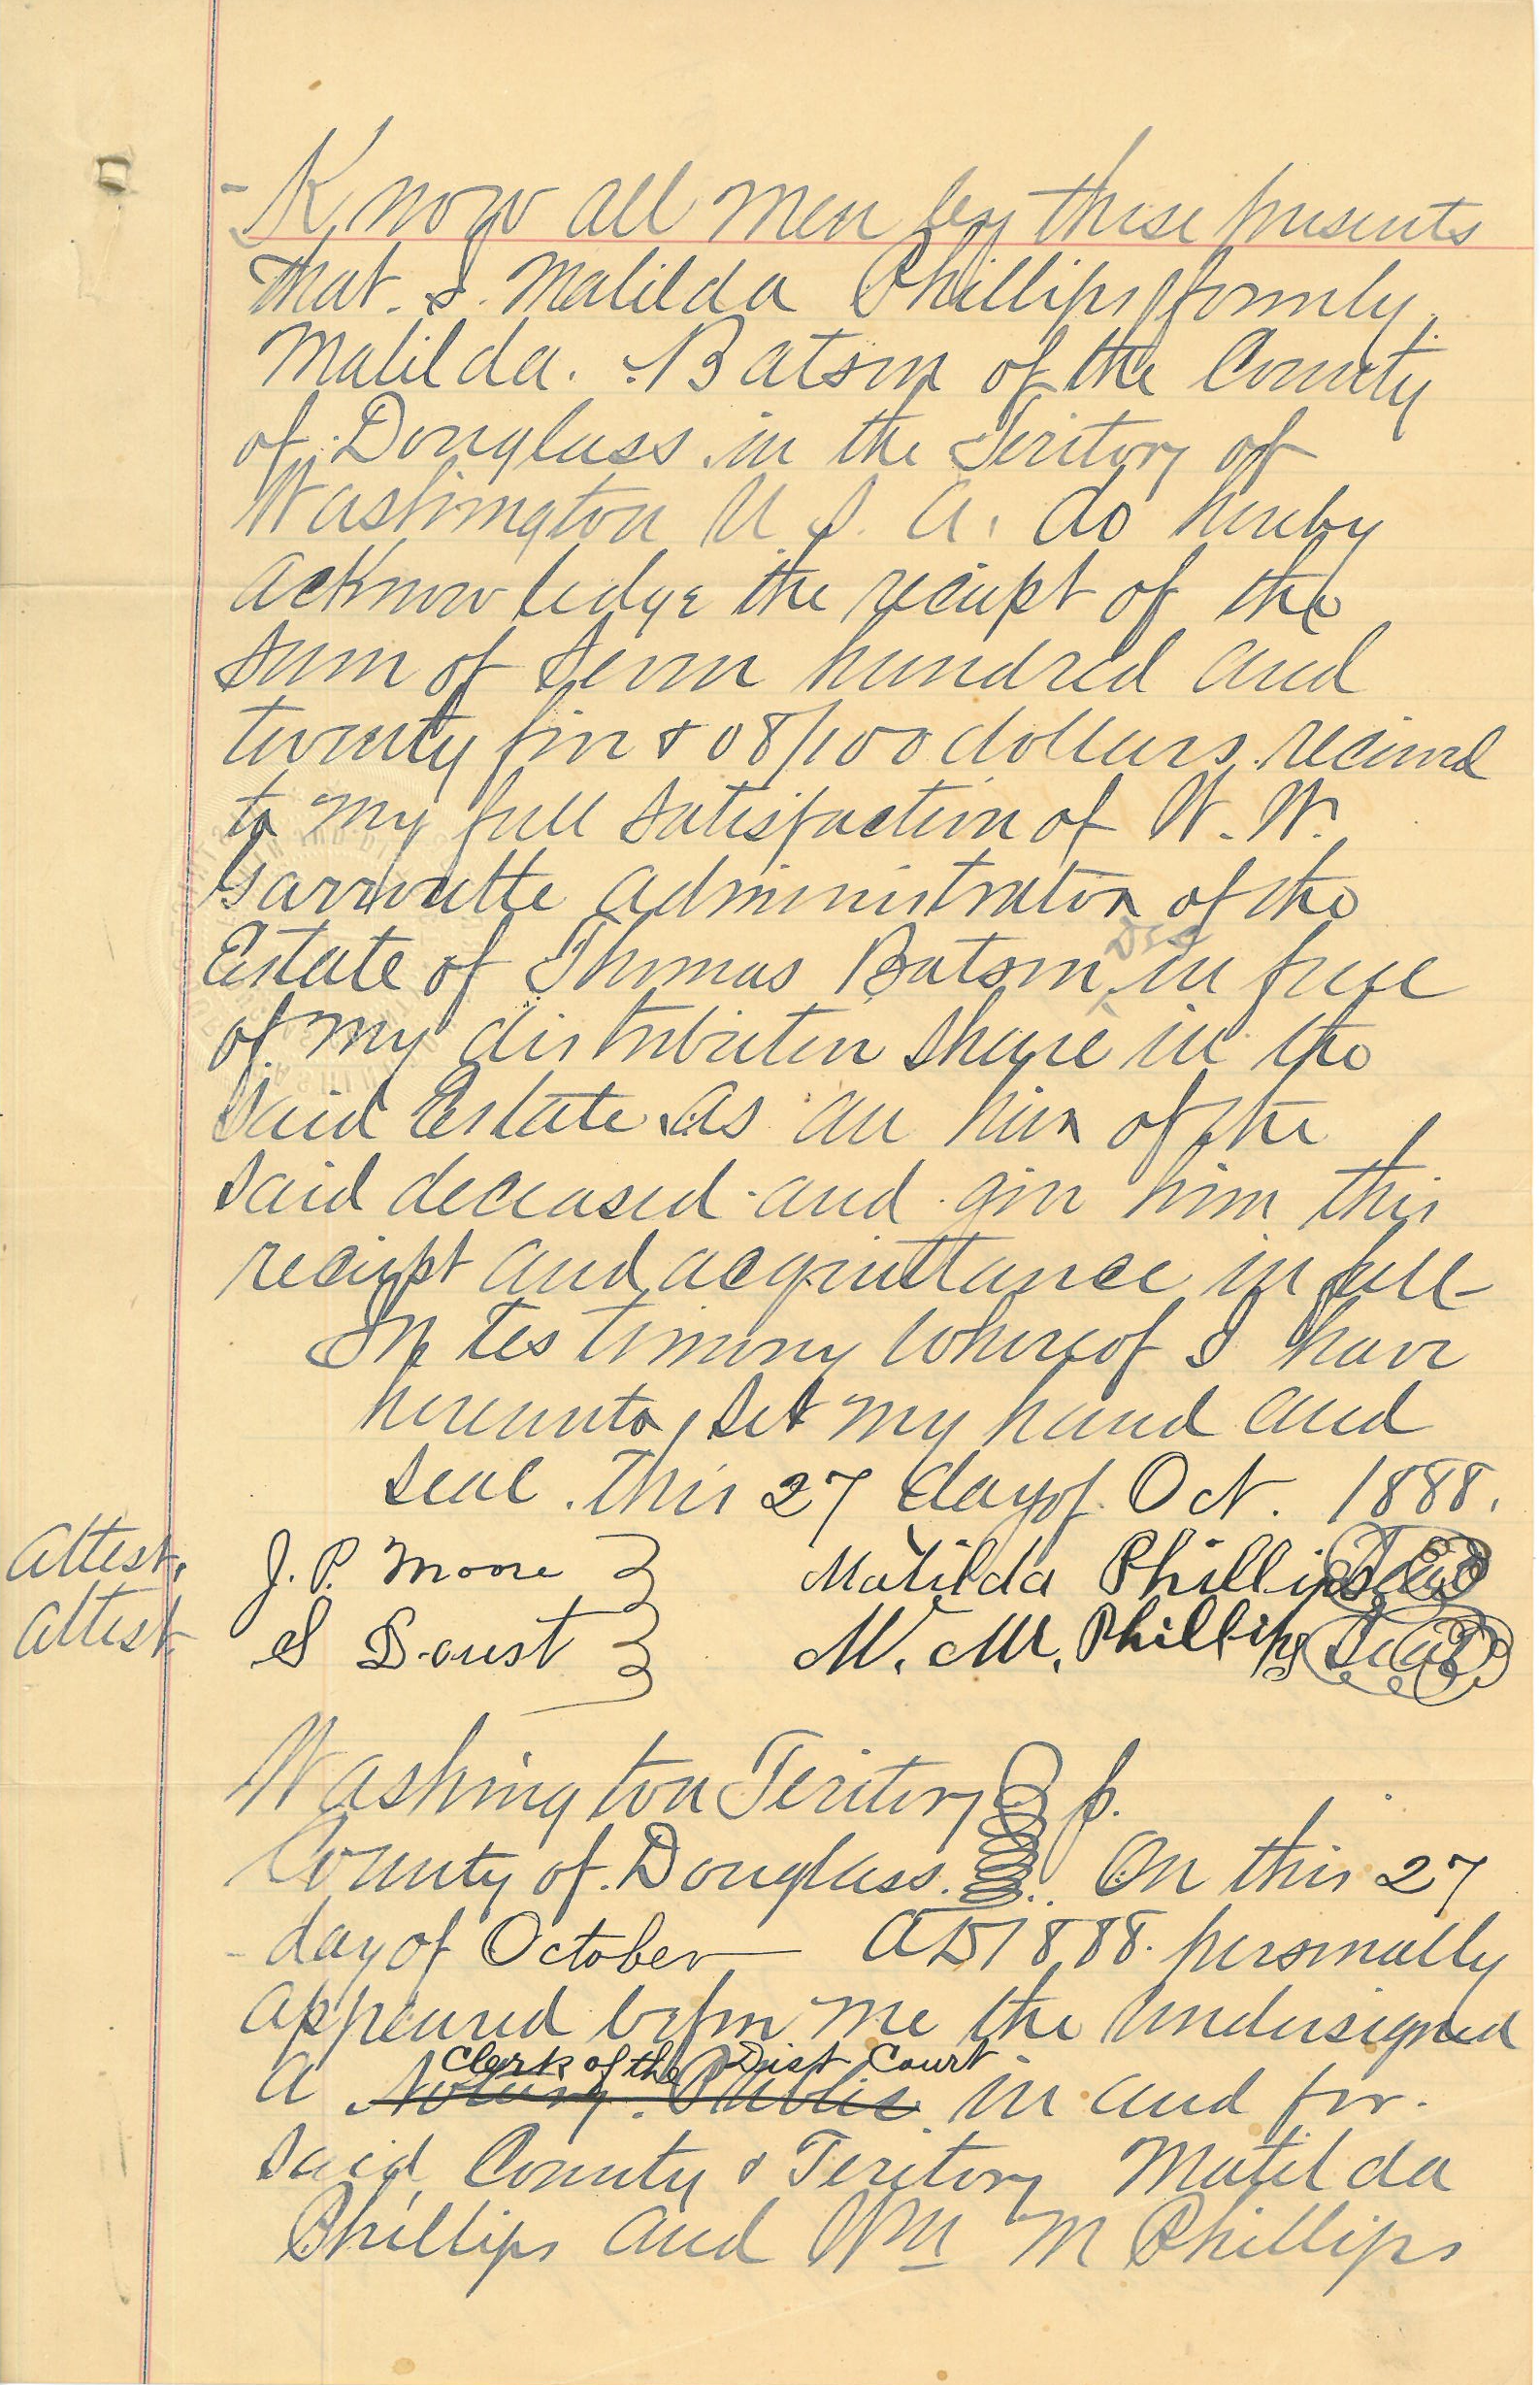 Know all men by these presents
that I. Matilda Phillips formerly
Matilda. Batson of the County
of Douglass in the Teritory of
Washington U. S. A. do hereby
acknowledge the reciept of the
sum of seven hundred and
twenty five & 08/100 dollars recieved
to my full satisfaction of W. W.
Garroutte administrator of the
Dec
Estate of Thomas Batson ^ in full
of my distributive share in the
said Estate as an heir of the
said deceased and give him this
reciept and acquittance in full
In testimony whereof I have
hereunto set my hand and
seal this 27 day of Oct. 1888.
Attest. J. P. Moore } Matilda Phillips Seal
Attest. S Doust } W. M. Phillips Seal
Washington Teritory }
County of Douglass. } On this 27
day of October AD 1888. personally
appeared before me the undersigned
Clerk of the Dist Court
a Notary Public in and for
said County & Teritory Matilda
Phillips and Wm M Phillips